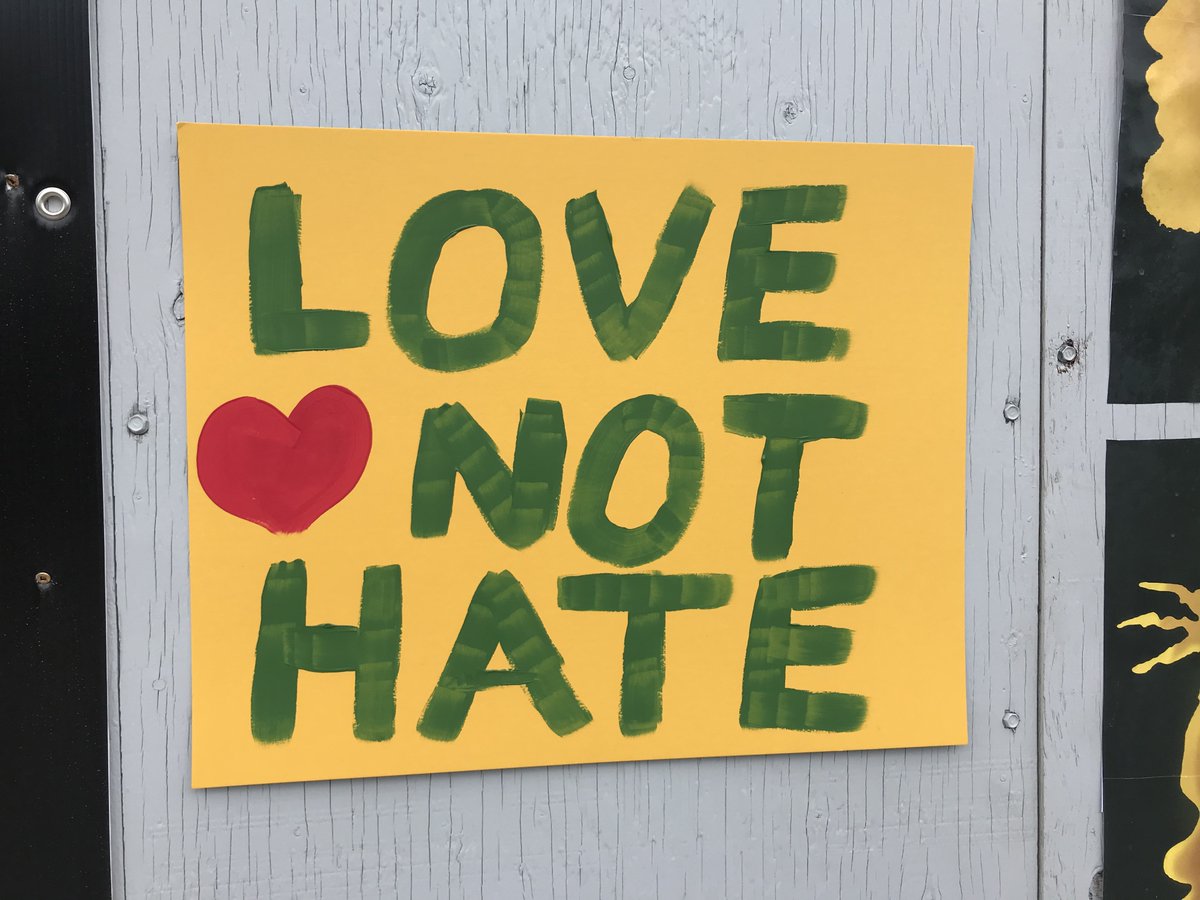 LOVE
NOT
HATE